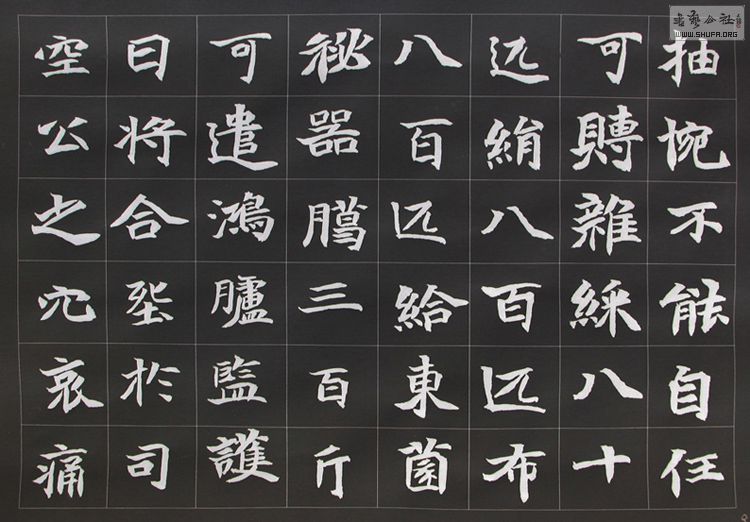 書藝公社
WWW.SHUFA.ORG
抽惋不能自任
可賻雜綵八十
匹絹八百匹布
八百匹給東園
祕器臈三百斤
可遣鴻臚監護
日將合於司
空公之穴哀痛